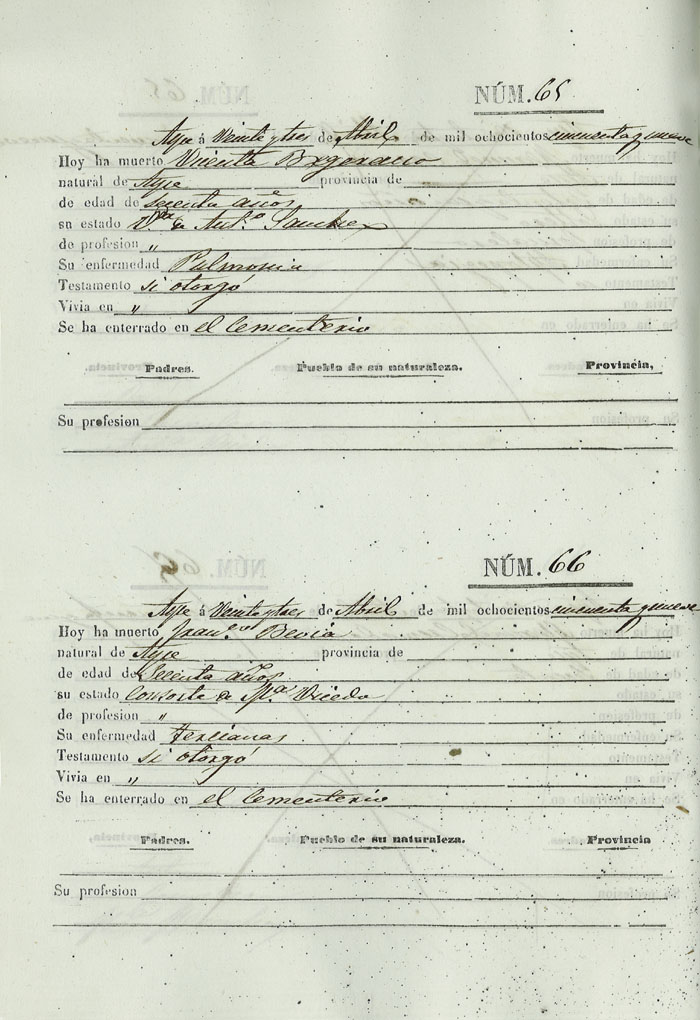 NÚM. 65
Aspe á Veinte y tres de Abril de mil ochocientos cincuenta y nueve
Hoy ha muerto Vicenta
natural de Aspe provincia de
de edad de setenta años
su estado Vda de Anto Sanchez
de profesion "
Su enfermedad Pulmonia
Testamento si otorgó
Vivia en "
Se ha enterrado en el Cementerio
Padres. Pueblo de su naturaleza. Provincia,
Su profesion
NÚM. 66
Aspe á Veinte y tres de Abril de mil ochocientos cincuenta y nueve
Hoy ha muerto Franco Bevia
natural de Aspe provincia de
de edad de años
su estado Consorte de Ma
de profesion "
Su enfermedad Tercianas
Testamento si otorgó
Vivia en "
Se ha enterrado en el Cementerio
Padres. Pueblo de su naturaleza. Provincia
Su profesion